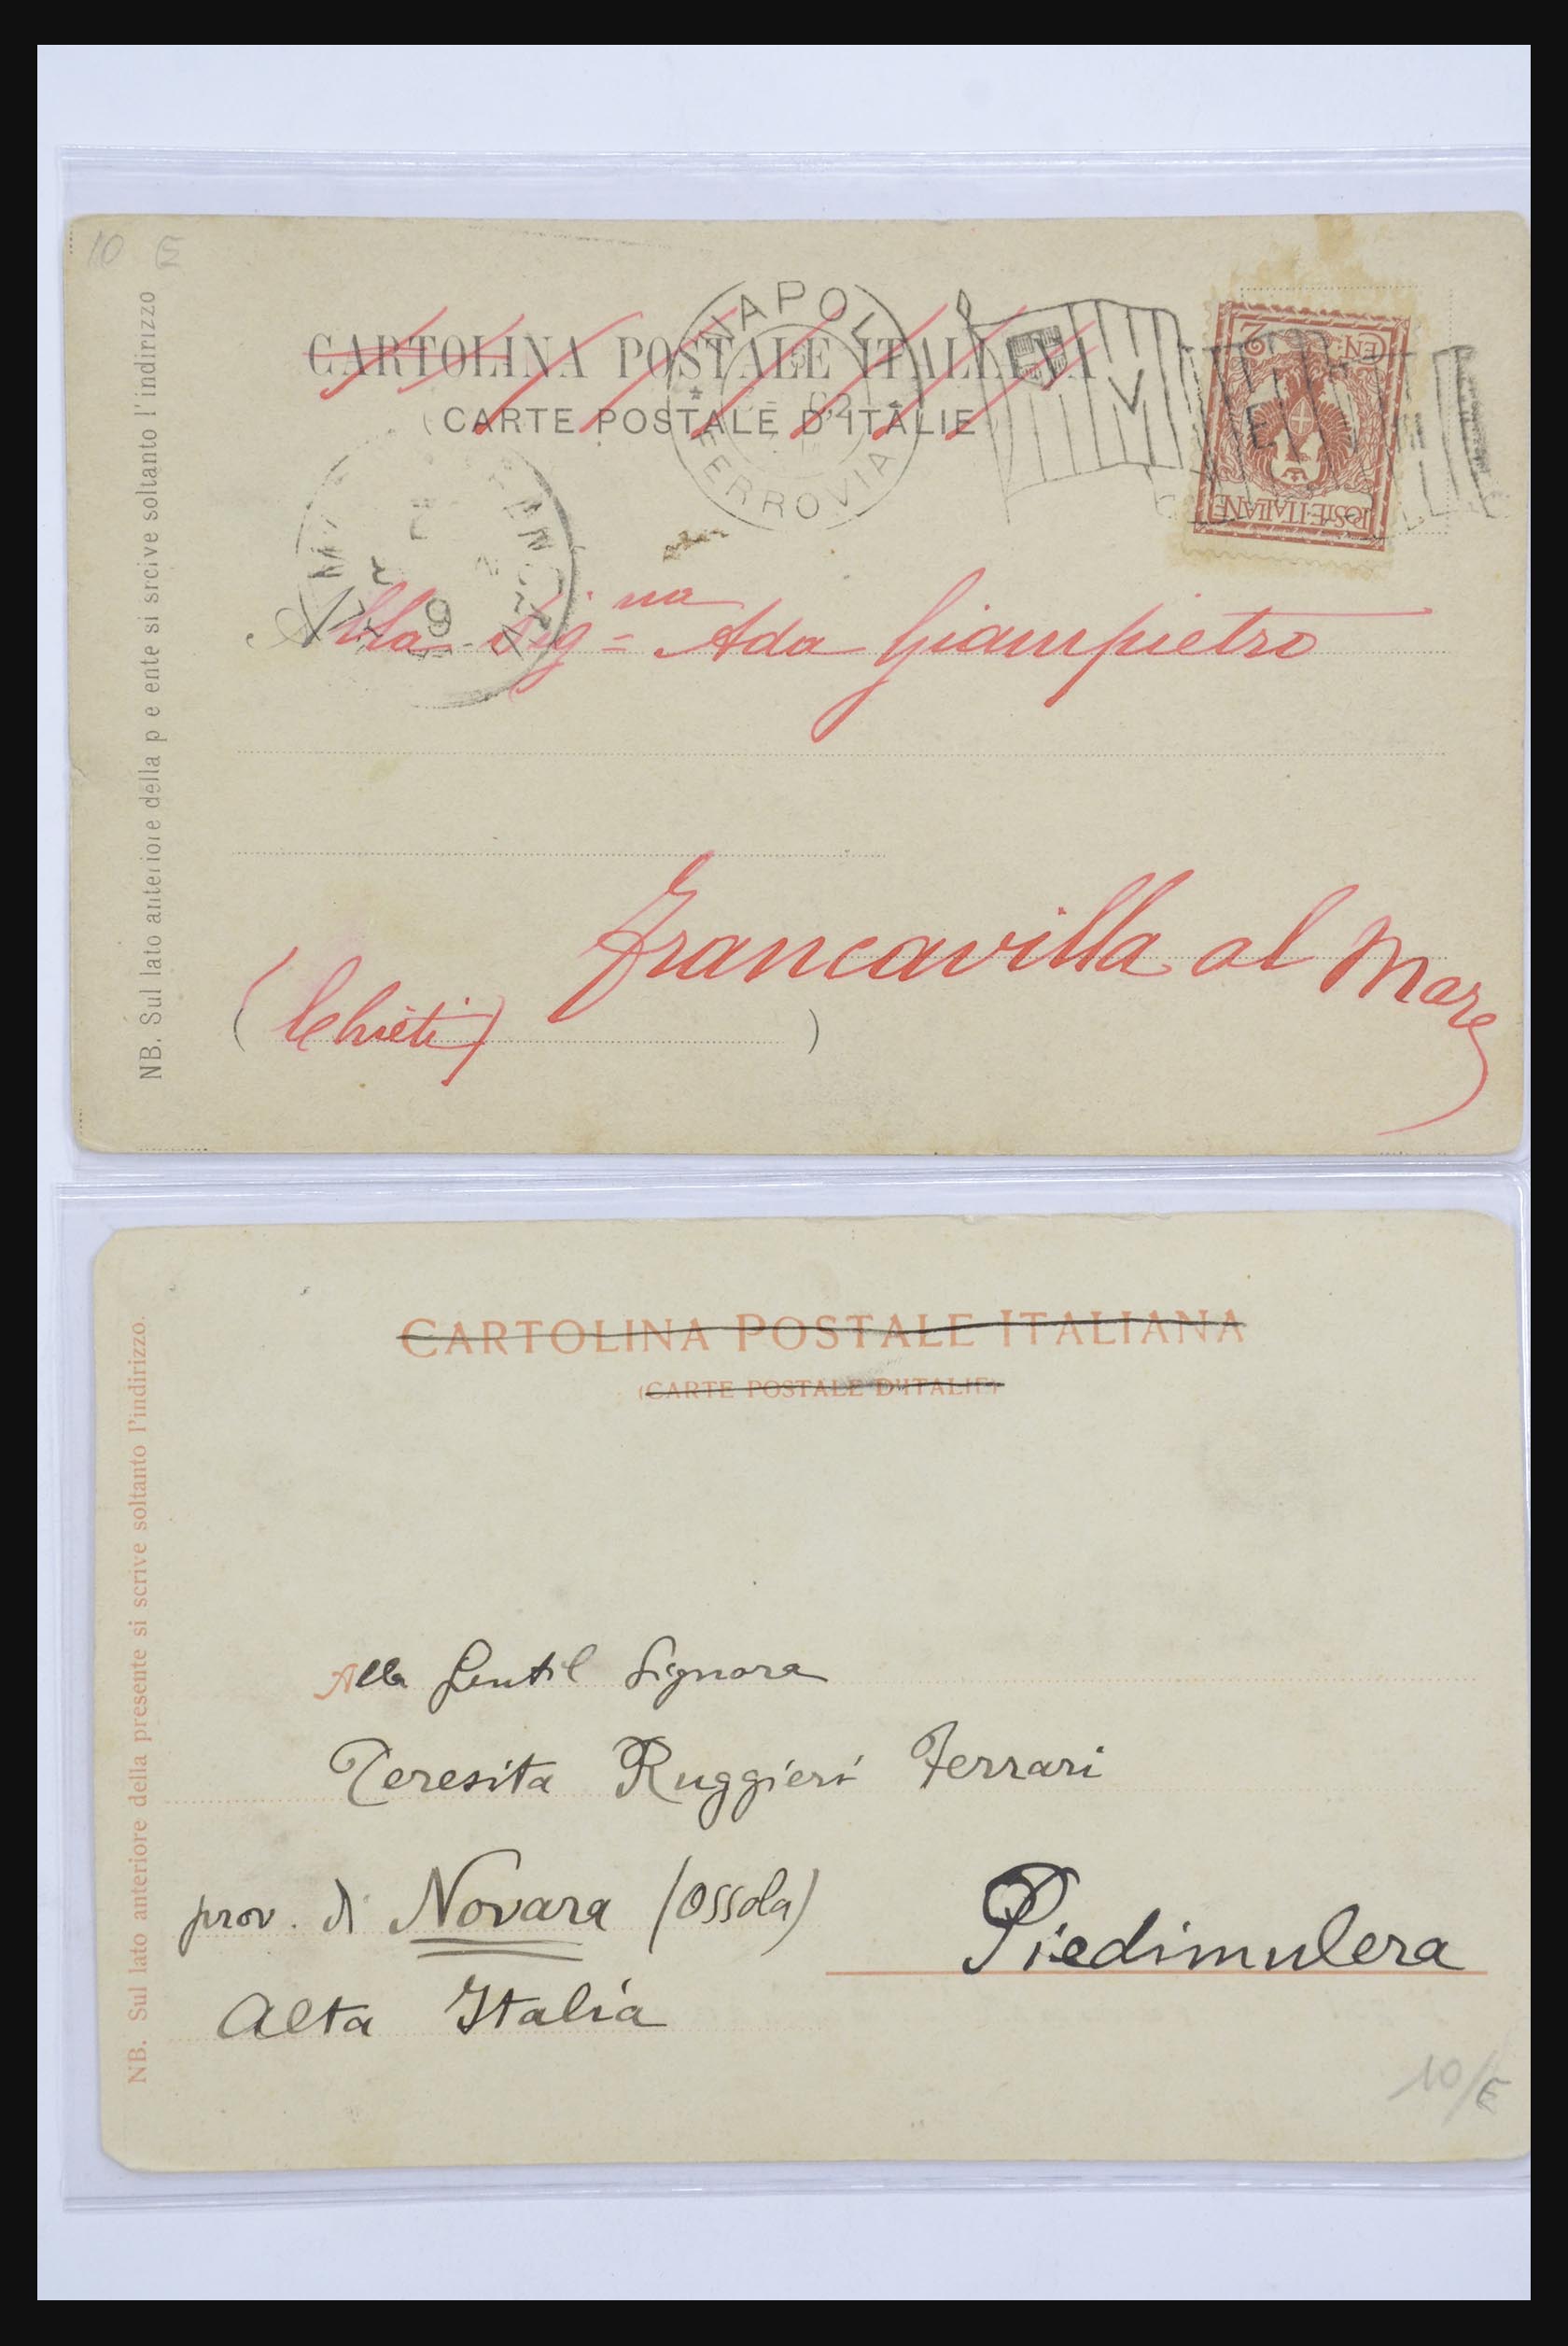 10 E
CARTOLINA POSTALE ITALIANA
(CARTE POSTALE D'ITALIE
NAPOLI
FERROVIA
2 CEN.
POSTE ITALIANE
NB. Sul lato anteriore della p e ente si srcive soltanto l'indirizzo
Alla Sig.na Ada Giampietro
Francavilla al Mare
(Chieti)
CARTOLINA POSTALE ITALIANA
(CARTE POSTALE D'ITALIE)
NB. Sul lato anteriore della presente si scrive soltanto l'indirizzo.
Alla Gentil Signora
Teresita Ruggieri Ferrari
prov. di Novara (Ossola)
Piedimulera
Alta Italia
10/E